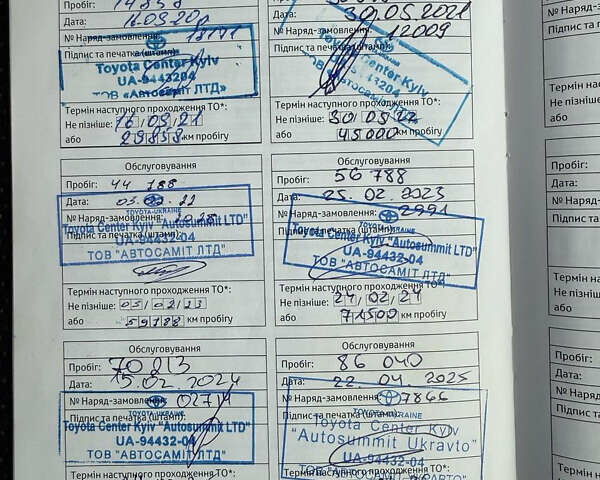 Пробіг: 14858
Дата: 16.09.20
№ Наряд-замовлення: 18171
Підпис та печатка (штамп):
Toyota Center Kyiv
UA-9443204
ТОВ «Автосаміт ЛТД»
Термін наступного проходження ТО*:
Не пізніше: 16/09/21
або 29858 км пробігу
Дата: 30.05.2021
№ Наряд-замовлення: 12009
Підпис та печатка (штамп):
Toyota Center Kyiv
Термін наступного проходження ТО*:
Не пізніше: 30/05/22
або 45000 км пробігу
Обслуговування
Пробіг: 44 188
Дата:
№ Наряд-замовлення:
Підпис та печатка (штамп):
TOYOTA-UKRAINE
Toyota Center Kyiv "Autosummit LTD"
UA-94432-04
ТОВ "АВТОСАМІТ ЛТД"
Термін наступного проходження ТО*:
Не пізніше: 03/02/23
або 59188 км пробігу
Обслуговування
Пробіг: 56 788
Дата: 25.02.2023
№ Наряд-замовлення: 2991
TOYOTA-UKRAINE
Toyota Center Kyiv "Autosummit LTD"
UA-94432-04
ТОВ "АВТОСАМІТ ЛТД"
Термін наступного проходження ТО*:
Не пізніше: 24/02/24
або 71500 км пробігу
Обслуговування
Пробіг: 70213
Дата: 15.02.2024
№ Наряд-замовлення:
Підпис та печатка (штамп):
TOYOTA-UKRAINE
Toyota Center Kyiv "Autosummit LTD"
UA-94432-04
ТОВ "АВТОСАМІТ ЛТД"
Термін наступного проходження ТО*:
Обслуговування
Пробіг: 86 040
Дата: 22.04.2025
№ Наряд-замовлення: 07866
Підпис та печатка (штамп):
TOYOTA-UKRAINE
Toyota Center Kyiv
"Autosummit Ukravto"
UA-94432-04
Термін наступного проходження ТО*:
Дата:
№ Наряд-з
Підпис та п
Термін н
Не пізніше
або
Пробіг:
Дата:
№ Наряд-
Підпис та
Термін н
Не пізніш
або
Пробіг:
Дата:
№ Наряд
Підпис та
Термін